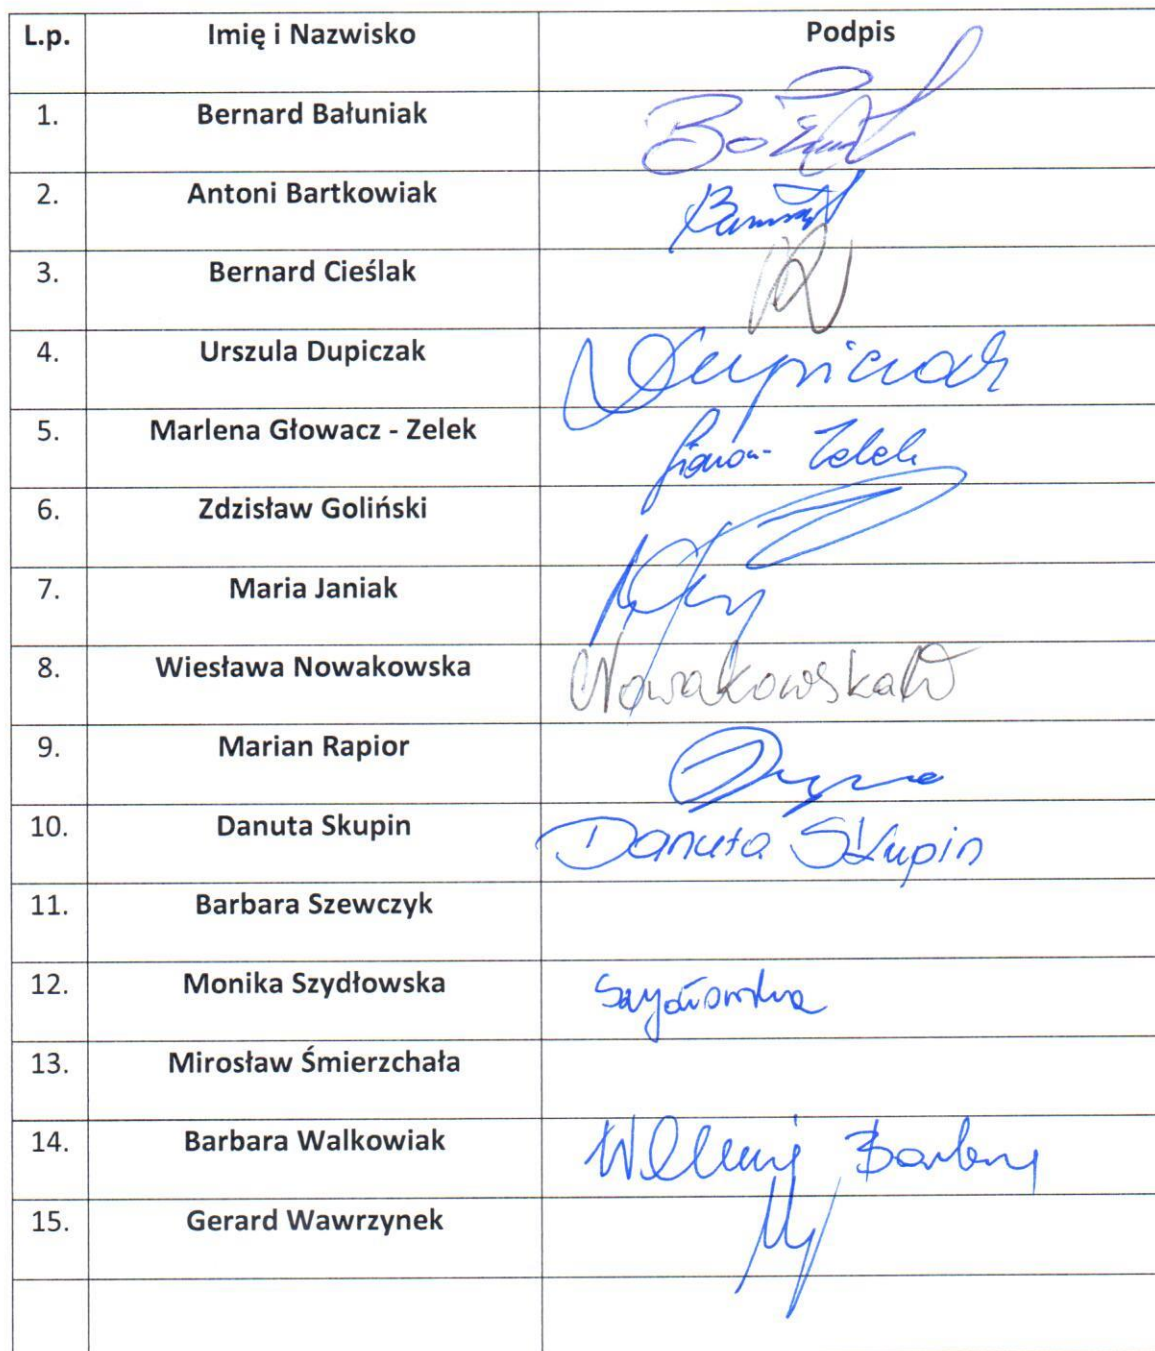 L.p. Imię i Nazwisko Podpis
1. Bernard Bałuniak
2. Antoni Bartkowiak
3. Bernard Cieślak
4. Urszula Dupiczak Dupiczak
5. Marlena Głowacz - Zelek Zelek
6. Zdzisław Goliński
7. Maria Janiak
8. Wiesława Nowakowska Nowakowska W
9. Marian Rapior
10. Danuta Skupin Danuta Skupin
11. Barbara Szewczyk
12. Monika Szydłowska Szydłowska
13. Mirosław Śmierzchała
14. Barbara Walkowiak
15. Gerard Wawrzynek